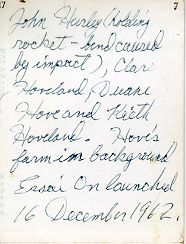 17 7
John Hurley (holding
rocket - bend caused
by impact), Clare
Hoveland, Duane
Hove and Keith
Hoveland. Hove's
farm in background
Essai On launched
16 December 1962.